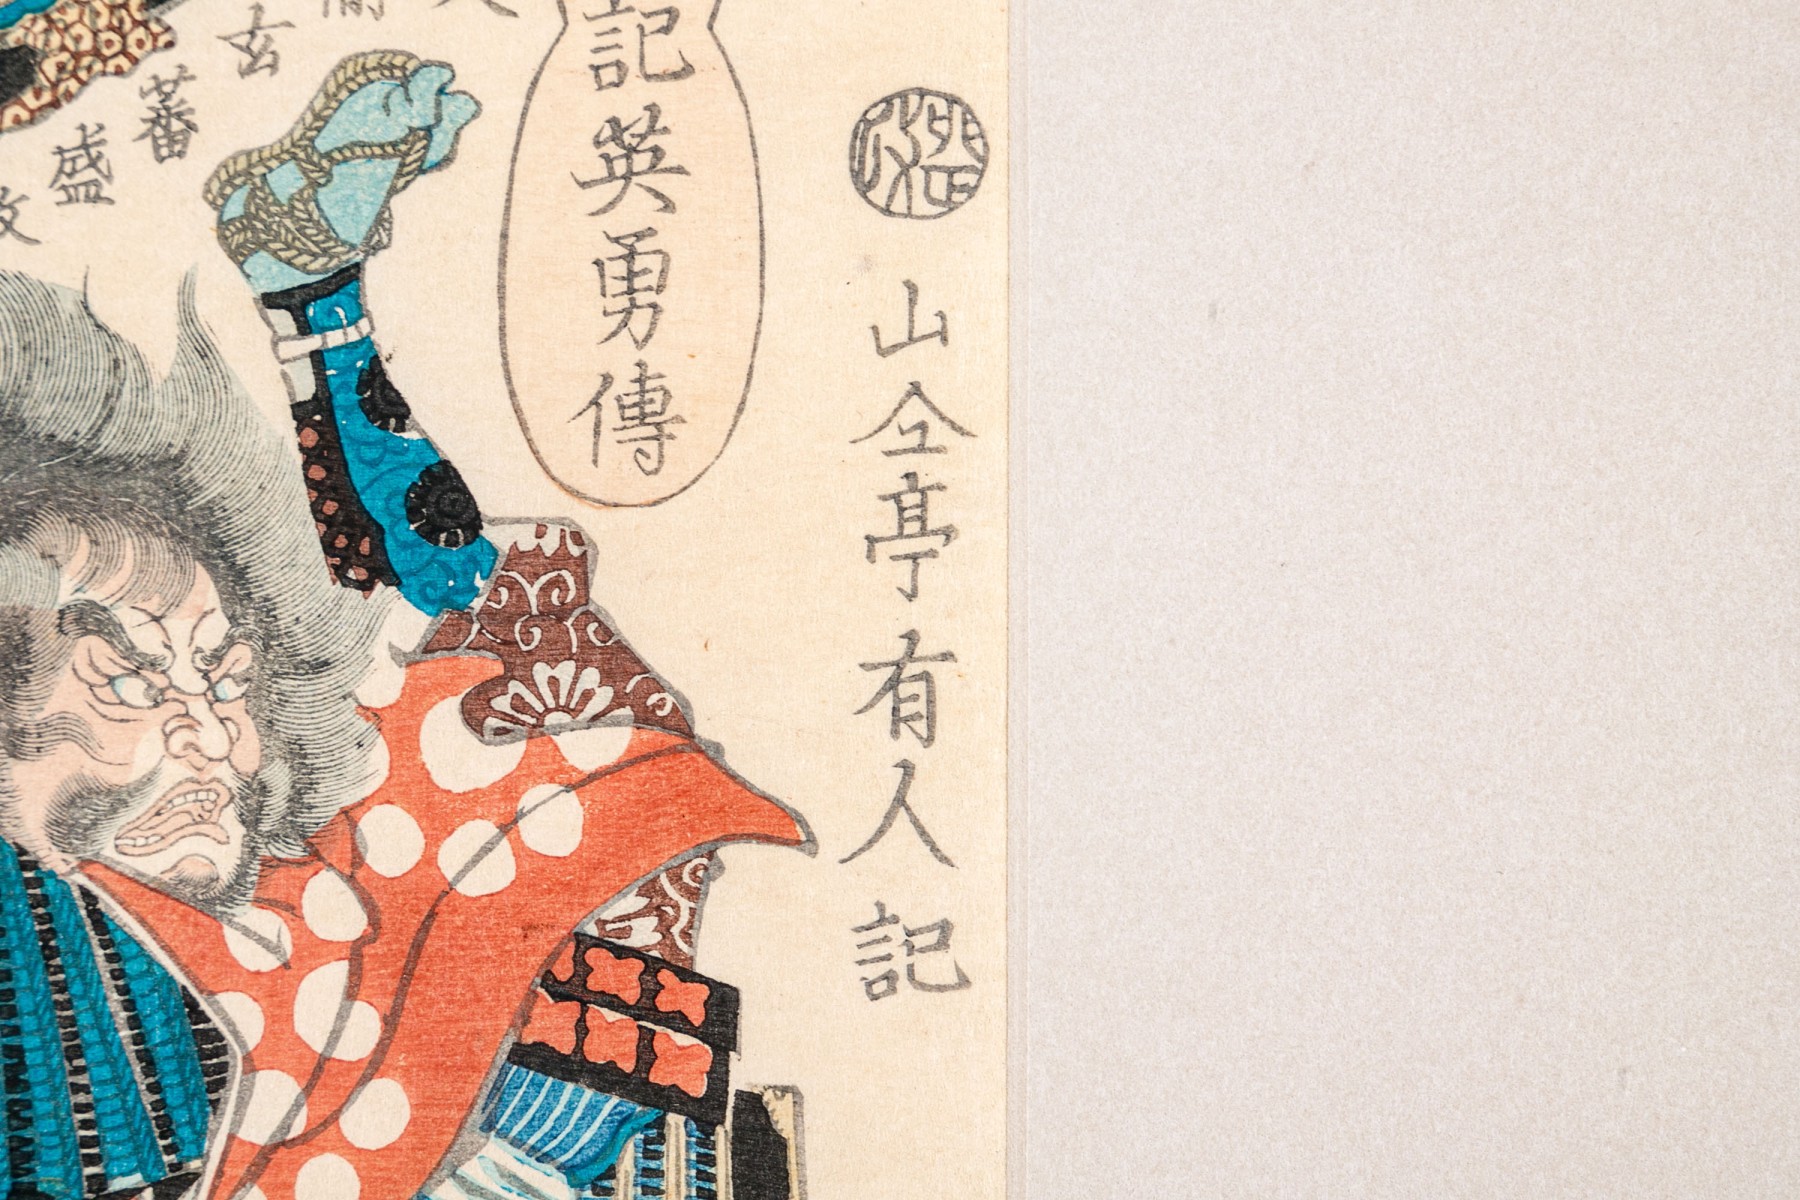 山仝亭有人記
記英勇傳
玄
蕃
盛
政